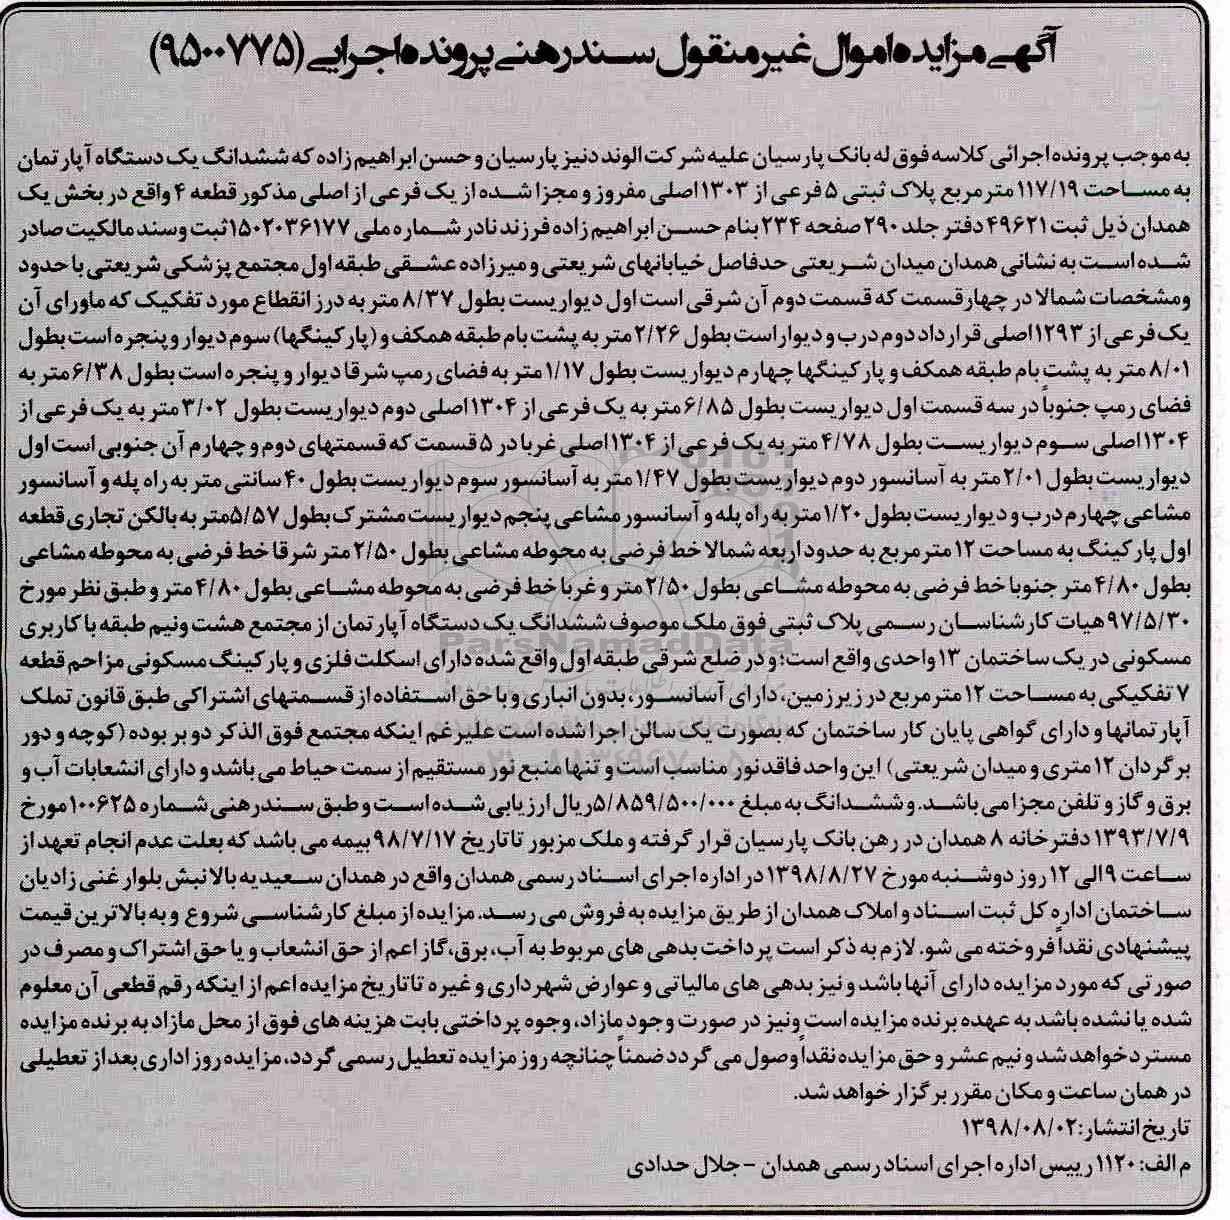 آگهی مزایده اموال غیر منقول سند رهنی پرونده اجرایی (۹۵۰۰۷۷۵)
به موجب پرونده اجرائی کلاسه فوق له بانک پارسیان علیه شرکت الوند دنیز پارسیان و حسن ابراهیم زاده که ششدانگ یک دستگاه آپارتمان
به مساحت ۱۱۷/۱۹ متر مربع پلاک ثبتی ۵ فرعی از ۱۳۰۳ اصلی مفروز و مجزا شده از یک فرعی از اصلی مذکور قطعه ۴ واقع در بخش یک
همدان ذیل ثبت ۴۹۶۲۱ دفتر جلد ۲۹۰ صفحه ۲۳۴ بنام حسن ابراهیم زاده فرزند نادر شماره ملی ۱۵۰۲۰۳۶۱۷۷ ثبت و سند مالکیت صادر
شده است به نشانی همدان میدان شریعتی حدفاصل خیابانهای شریعتی و میرزاده عشقی طبقه اول مجتمع پزشکی شریعتی با حدود
ومشخصات شمالا در چهار قسمت که قسمت دوم آن شرقی است اول دیواریست بطول ۸/۳۷ متر به درز انقطاع مورد تفکیک که ماورای آن
یک فرعی از ۱۲۹۳ اصلی قرار داد دوم درب و دیوار است بطول ۲/۲۶ متر به پشت بام طبقه همکف و (پارکینگها) سوم دیوار و پنجره است بطول
۸/۰۱ متر به پشت بام طبقه همکف و پارکینگها چهارم دیواریست بطول ۱/۱۷ متر به فضای رمپ شرقا دیوار و پنجره است بطول ۶/۳۸ متر به
فضای رمپ جنوباً در سه قسمت اول دیواریست بطول ۶/۸۵ متر به یک فرعی از ۱۳۰۴ اصلی دوم دیواریست بطول ۳/۰۲ متر به یک فرعی از
۱۳۰۴ اصلی سوم دیواریست بطول ۴/۷۸ متر به یک فرعی از ۱۳۰۴ اصلی غربا در ۵ قسمت که قسمتهای دوم و چهارم آن جنوبی است اول
دیواریست بطول ۲/۰۱ متر به آسانسور دوم دیواریست بطول ۱/۴۷ متر به آسانسور سوم دیواریست بطول ۴۰ سانتی متر به راه پله و آسانسور
مشاعی چهارم درب و دیواریست بطول ۱/۲۰ متر به راه پله و آسانسور مشاعی پنجم دیواریست مشترک بطول ۵/۵۷ متر به بالکن تجاری قطعه
اول پارکینگ به مساحت ۱۲ متر مربع به حدود اربعه شمالا خط فرضی به محوطه مشاعی بطول ۲/۵۰ متر شرقا خط فرضی به محوطه مشاعی
بطول ۴/۸۰ متر جنوبا خط فرضی به محوطه مشاعی بطول ۲/۵۰ متر و غربا خط فرضی به محوطه مشاعی بطول ۴/۸۰ متر و طبق نظر مورخ
۹۷/۵/۳۰ هیات کارشناسان رسمی پلاک ثبتی فوق ملک موصوف ششدانگ یک دستگاه آپارتمان از مجتمع هشت ونیم طبقه با کاربری
مسکونی در یک ساختمان ۱۳ واحدی واقع است؛ و در ضلع شرقی طبقه اول واقع شده دارای اسکلت فلزی و پارکینگ مسکونی مزاحم قطعه
۷ تفکیکی به مساحت ۱۲ متر مربع در زیر زمین، دارای آسانسور، بدون انباری و با حق استفاده از قسمتهای اشتراکی طبق قانون تملک
آپارتمانها و دارای گواهی پایان کار ساختمان که بصورت یک سالن اجرا شده است علیرغم اینکه مجتمع فوق الذکر دو بر بوده (کوچه و دور
برگردان ۱۲ متری و میدان شریعتی) این واحد فاقد نور مناسب است و تنها منبع نور مستقیم از سمت حیاط می باشد و دارای انشعابات آب و
برق و گاز و تلفن مجزا می باشد. و ششدانگ به مبلغ ۵/۸۵۹/۵۰۰/۰۰۰ ریال ارزیابی شده است و طبق سند رهنی شماره ۱۰۰۶۲۵ مورخ
۱۳۹۳/۷/۹ دفتر خانه ۸ همدان در رهن بانک پارسیان قرار گرفته و ملک مزبور تا تاریخ ۹۸/۷/۱۷ بیمه می باشد که بعلت عدم انجام تعهد از
ساعت ۹ الی ۱۲ روز دوشنبه مورخ ۱۳۹۸/۸/۲۷ در اداره اجرای اسناد رسمی همدان واقع در همدان سعیدیه بالا نبش بلوار غنی زادیان
ساختمان اداره کل ثبت اسناد و املاک همدان از طریق مزایده به فروش می رسد. مزایده از مبلغ کارشناسی شروع و به بالاترین قیمت
پیشنهادی نقداً فروخته می شو. لازم به ذکر است پرداخت بدهی های مربوط به آب، برق، گاز اعم از حق انشعاب و یا حق اشتراک و مصرف در
صورتی که مورد مزایده دارای آنها باشد و نیز بدهی های مالیاتی و عوارض شهرداری و غیره تا تاریخ مزایده اعم از اینکه رقم قطعی آن معلوم
شده یا نشده باشد به عهده برنده مزایده است ونیز در صورت وجود مازاد، وجوه پرداختی بابت هزینه های فوق از محل مازاد به برنده مزایده
مسترد خواهد شد و نیم عشر و حق مزایده نقداً وصول می گردد ضمناً چنانچه روز مزایده تعطیل رسمی گردد، مزایده روز اداری بعد از تعطیلی
در همان ساعت و مکان مقرر برگزار خواهد شد.
تاریخ انتشار: ۱۳۹۸/۰۸/۰۲
م الف: ۱۱۲۰ رییس اداره اجرای اسناد رسمی همدان - جلال حدادی
ParsNamadData